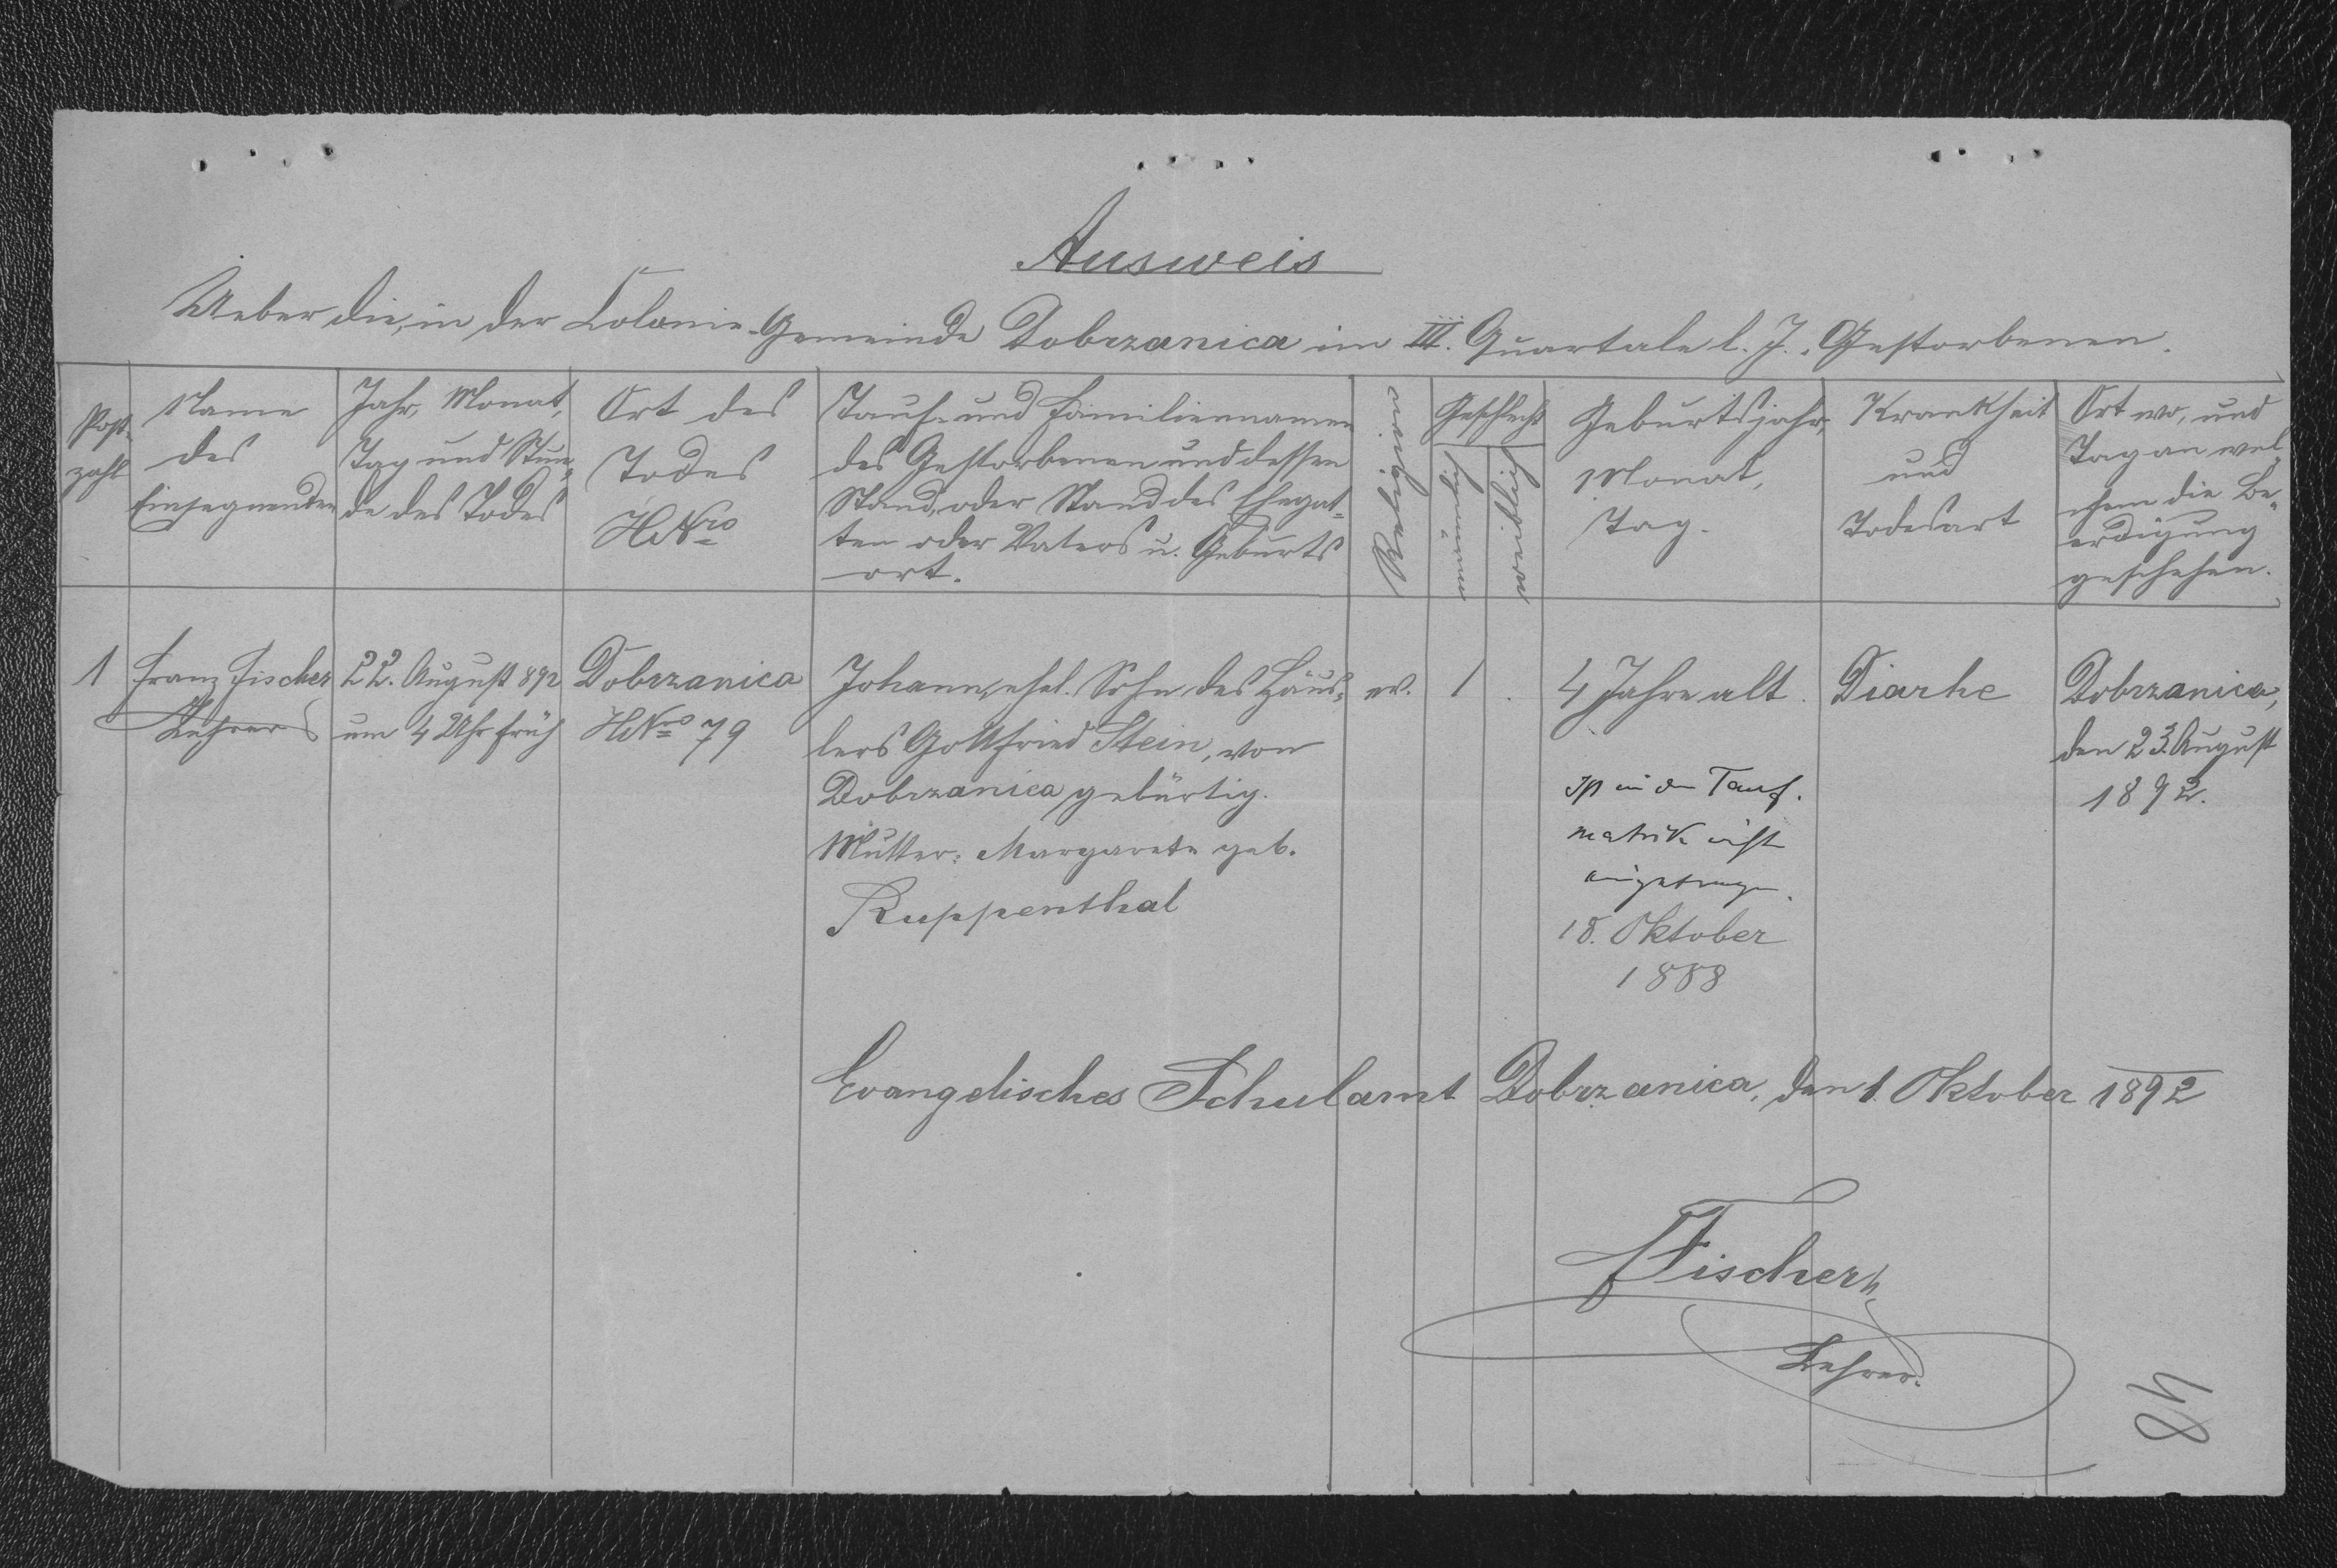 Ausweis
Ueber die, in der Colonie-Gemeinde Dobrzanica im III. Quartale l. J. Gestorbenen.
Post-
zahl
Name
des
Einsegnenden
Jahr, Monat,
Tag und Stun-
de des Todes
Ort des
Todes
HNro
Tauf- und Familiennamen
des Gestorbenen und dessen
Stand, oder Stand des Ehegat-
ten oder Vaters u. Geburts
ort.
Religion
Geschlecht
männlich
weiblich
Geburtsjahr,
Monat,
Tag.
Krankheit
und
Todesart
Ort wo, und
Tag an wel-
chem die Be-
erdigung
geschehen.
1
Franz Fischer
Lehrer
22. August 892
um 4 Uhr früh
Dobrzanica
HNro 79
Johann, ehel. Sohn des Häus-
lers Gottfried Stein, von
Dobrzanica gebürtig.
Mutter: Margarete geb.
Ruppenthal
ev.
1
4 Jahre alt.
Ist in der Tauf.
matrik nicht
eingetragen.
18. Oktober
1888
Diarhe
Dobrzanica,
den 23. August
1892.
Evangelisches Schulamt Dobrzanica, den 1. Oktober 1892
Fischer
Lehrer.
48